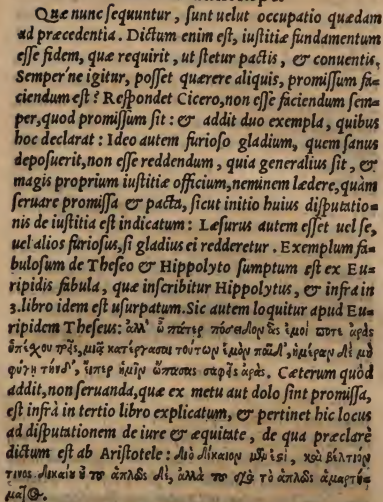 Quæ nunc ſequuntur, ſunt uelut occupatio quædam
ad præcedentia. Dictum enim eſt, iuſtitiæ fundamentum
eſſe fidem, quæ requirit, ut ſtetur pactis, & conuentis.
Semper'ne igitur, poſſet quærere aliquis, promiſſum fa=
ciendum eſt? Reſpondet Cicero, non eſſe faciendum ſem=
per, quod promiſſum ſit: & addit duo exempla, quibus
hoc declarat: Ideo autem furioſo gladium, quem ſanus
depoſuerit, non eſſe reddendum, quia generalius ſit, &
magis proprium iuſtitiæ officium, neminem lædere, quàm
ſeruare promiſſa & pacta, ſicut initio huius diſputatio=
nis de iuſtitia eſt indicatum: Læſurus autem eſſet uel ſe,
uel alios furioſus, ſi gladius ei redderetur. Exemplum fa=
buloſum de Theſeo & Hippolyto ſumptum eſt ex Eu=
ripidis fabula, quæ inſcribitur Hippolytus, & infrà in
3. libro idem eſt uſurpatum. Sic autem loquitur apud Eu=
ripidem Theſeus: ἀλλ' ὦ πάτερ πόσειδον ἃς ἐμοί ποτε ἀρὰς
ὑπέσχου τρεῖς, μιᾷ κατέργασαι τούτων ἐμὸν παῖδ', ἡμέραν δὲ μὴ
φύγῃ τήνδ', εἴπερ ἡμῖν ὤπασας σαφεῖς ἀράς. Cæterum quòd
addit, non ſeruanda, quæ ex metu aut dolo ſint promiſſa,
eſt infrà in tertio libro explicatum, & pertinet hic locus
ad diſputationem de iure & æquitate, de qua præclarè
dictum eſt ab Ariſtotele: Διὸ δίκαιον μέν ἐστι, καὶ βέλτιόν
τινος δικαίου οὐ τοῦ ἁπλῶς δὲ, ἀλλὰ τοῦ διὰ τὸ ἁπλῶς ἁμαρτή=
ματος.